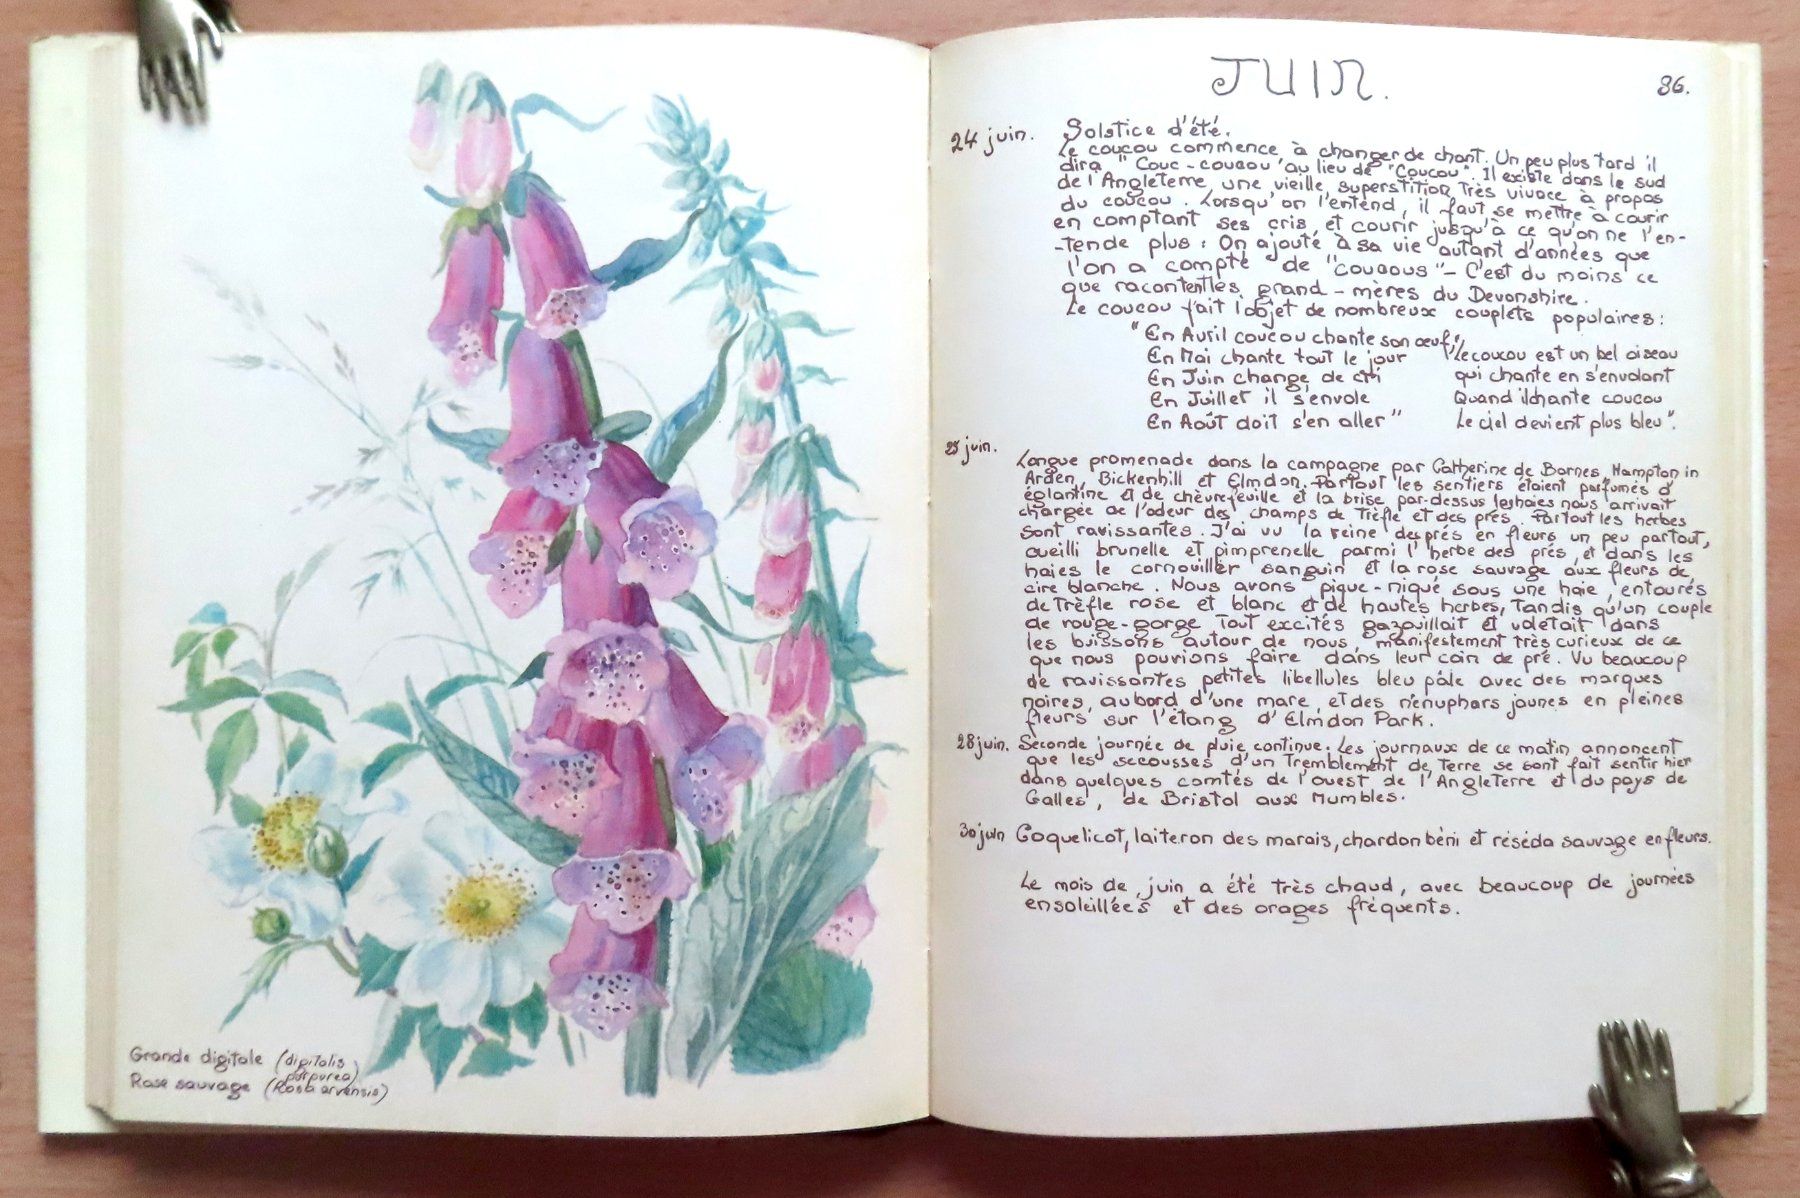 Grande digitale (digitalis
purpurea)
Rose sauvage (Rosa arvensis)
JUIN.
86.
24 juin. Solstice d'été.
Le coucou commence à changer de chant. Un peu plus tard il
dira "Couc-coucou" au lieu de "Coucou". Il existe dans le sud
de l'Angleterre, une vieille superstition très vivace à propos
du coucou. Lorsqu'on l'entend, il faut se mettre à courir
en comptant ses cris, et courir jusqu'à ce qu'on ne l'en-
-tende plus : On ajoute à sa vie autant d'années que
l'on a compté de "coucous" - C'est du moins ce
que racontent les grand-mères du Devonshire.
Le coucou fait l'objet de nombreux couplets populaires :
"En Avril coucou chante son œuf,
En Mai chante tout le jour
En Juin change de cri
En Juillet il s'envole
En Août doit s'en aller"
"Le coucou est un bel oiseau
qui chante en s'envolant
Quand il chante coucou
Le ciel devient plus bleu".
25 juin. Longue promenade dans la campagne par Catherine de Barnes, Hampton in
Arden, Bickenhill et Elmdon. Partout les sentiers étaient parfumés d'
églantine et de chèvrefeuille et la brise par-dessus les haies nous arrivait
chargée de l'odeur des champs de trèfle et des prés. Partout les herbes
sont ravissantes. J'ai vu la reine des prés en fleurs un peu partout,
cueilli brunelle et pimprenelle parmi l'herbe des prés, et dans les
haies le cornouiller sanguin et la rose sauvage aux fleurs de
cire blanche. Nous avons pique-niqué sous une haie, entourés
de trèfle rose et blanc et de hautes herbes, tandis qu'un couple
de rouge-gorge tout excités gazouillait et voletait dans
les buissons autour de nous, manifestement très curieux de ce
que nous pouvions faire dans leur coin de pré. Vu beaucoup
de ravissantes petites libellules bleu pâle avec des marques
noires, au bord d'une mare, et des nénuphars jaunes en pleines
fleurs sur l'étang d'Elmdon Park.
28 juin. Seconde journée de pluie continue. Les journaux de ce matin annoncent
que les secousses d'un tremblement de terre se sont fait sentir hier
dans quelques comtés de l'ouest de l'Angleterre et du pays de
Galles, de Bristol aux Mumbles.
30 juin Coquelicot, laiteron des marais, chardon béni et réséda sauvage en fleurs.
Le mois de juin a été très chaud, avec beaucoup de journées
ensoleillées et des orages fréquents.